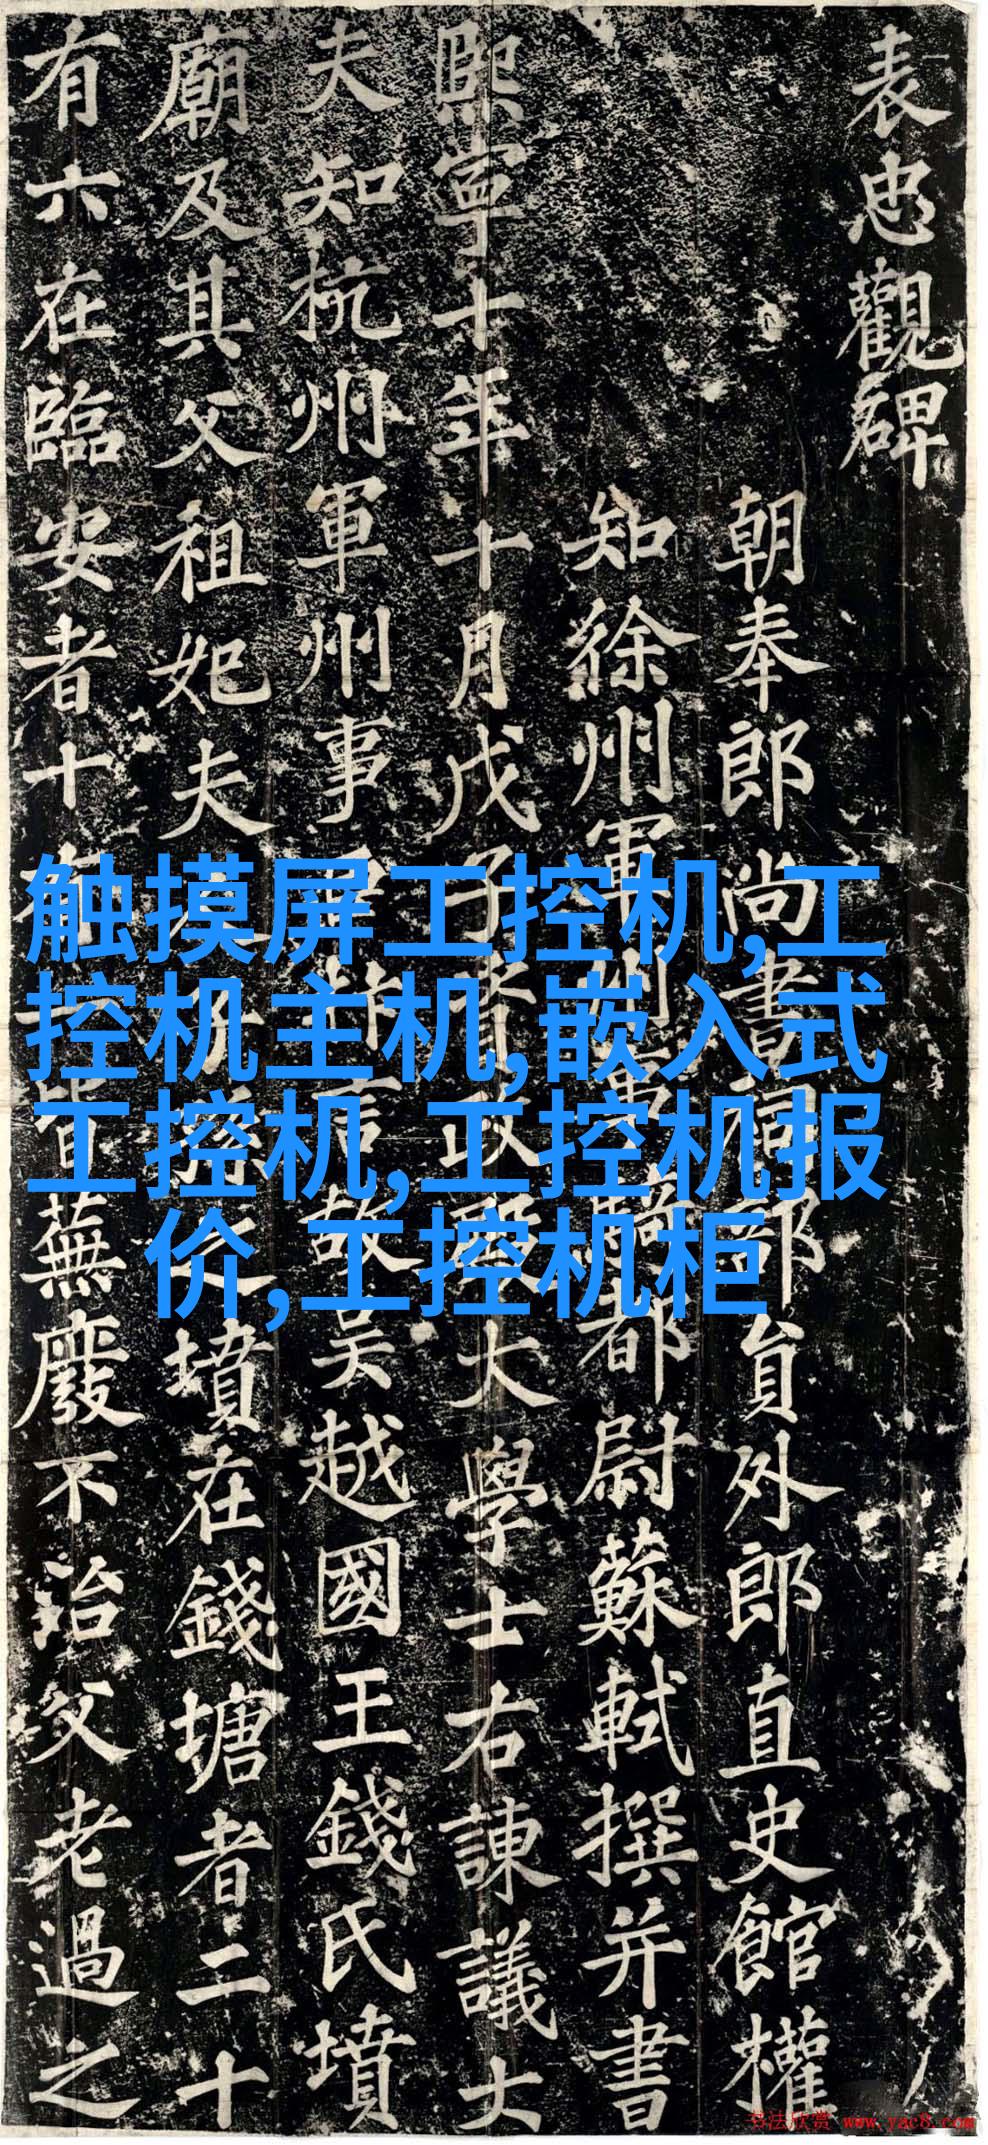 表忠觀碑
朝奉郎尚書祠部員外郎直史館權
知徐州軍州事騎都尉蘇軾撰并書
熙寧十年十月戊子資政殿大學士右諫議大
夫知杭州軍州事臣抃言故吳越國王錢氏墳
廟及其父祖妃夫人子孫之墳在錢塘者二十
有六在臨安者十有一皆蕪廢不治父老過之
触摸屏工控机,工
控机主机,嵌入式
工控机,工控机报
价,工控机柜
书法欣赏 www.yac8.com